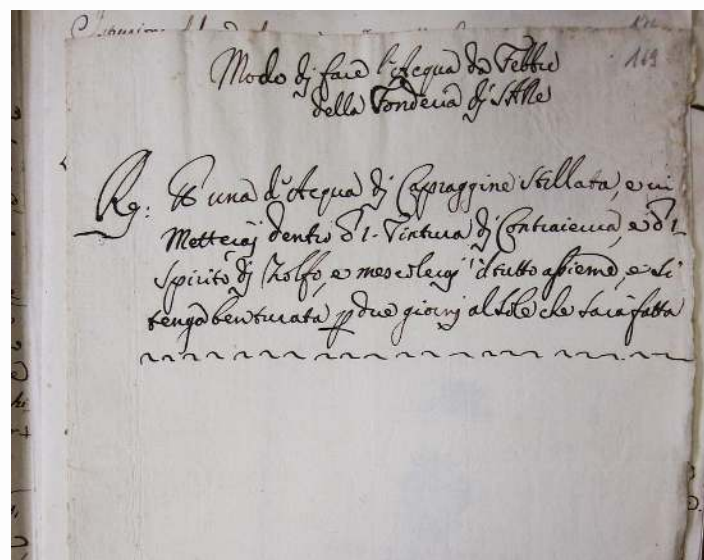 169
Modo dj fare l'Acqua da Febbre
della Fonderia dj S.A.Re
Rx: ℔ una d'Acqua dj Capraggine stillata, e vi
Metteraj dentro ℥ 1. Tintura dj Contraierua, e ℥ 1
Spirito dj Zolfo, e mescileraj il tutto assieme, e si
tenga ben turata p due giorni al Sole che sarà fatta